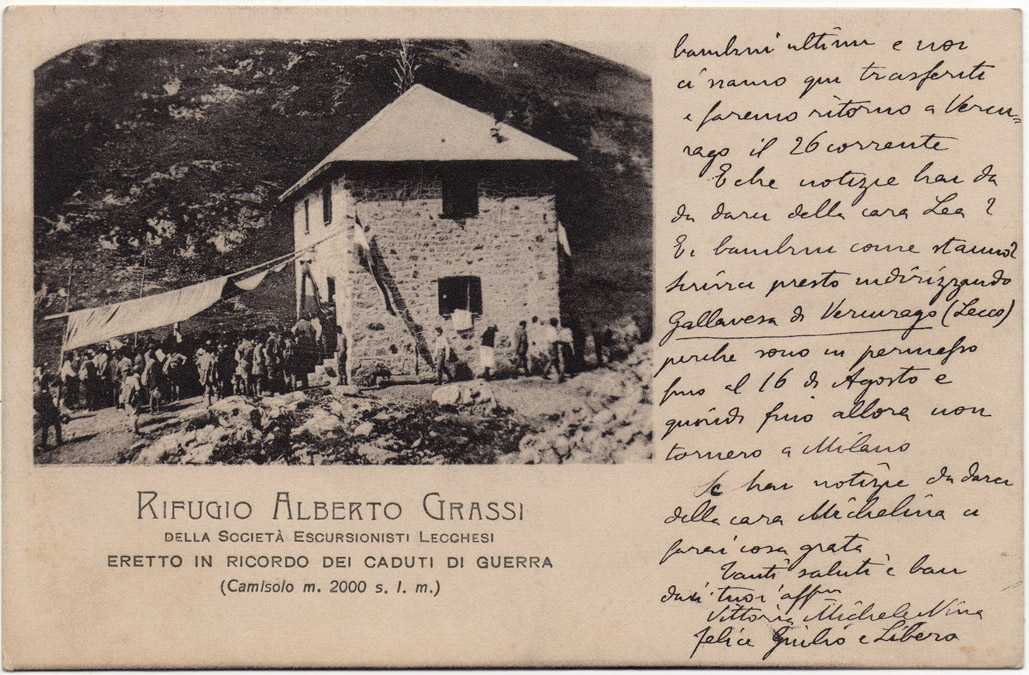 RIFUGIO ALBERTO GRASSI
DELLA SOCIETÀ ESCURSIONISTI LECCHESI
ERETTO IN RICORDO DEI CADUTI DI GUERRA
(Camisolo m. 2000 s. l. m.)
bambini ultimi e noi
ci siamo qui trasferiti
e faremo ritorno a Vercu=
rago il 26 corrente
E che notizie hai da
da darci della cara Lea?
Ei bambini come stanno?
Scrivici presto indirizzando
Gallavesa di Vercurago (Lecco)
perche sono in permesso
fino al 16 di Agosto e
quindi fino allora non
tornero a Milano
Se hai notizie da darci
della cara Michelina ci
farai cosa grata
Tanti saluti e baci
dai tuoi aff.mi
Vittoria Michele Nina
felice Giulio e Libero